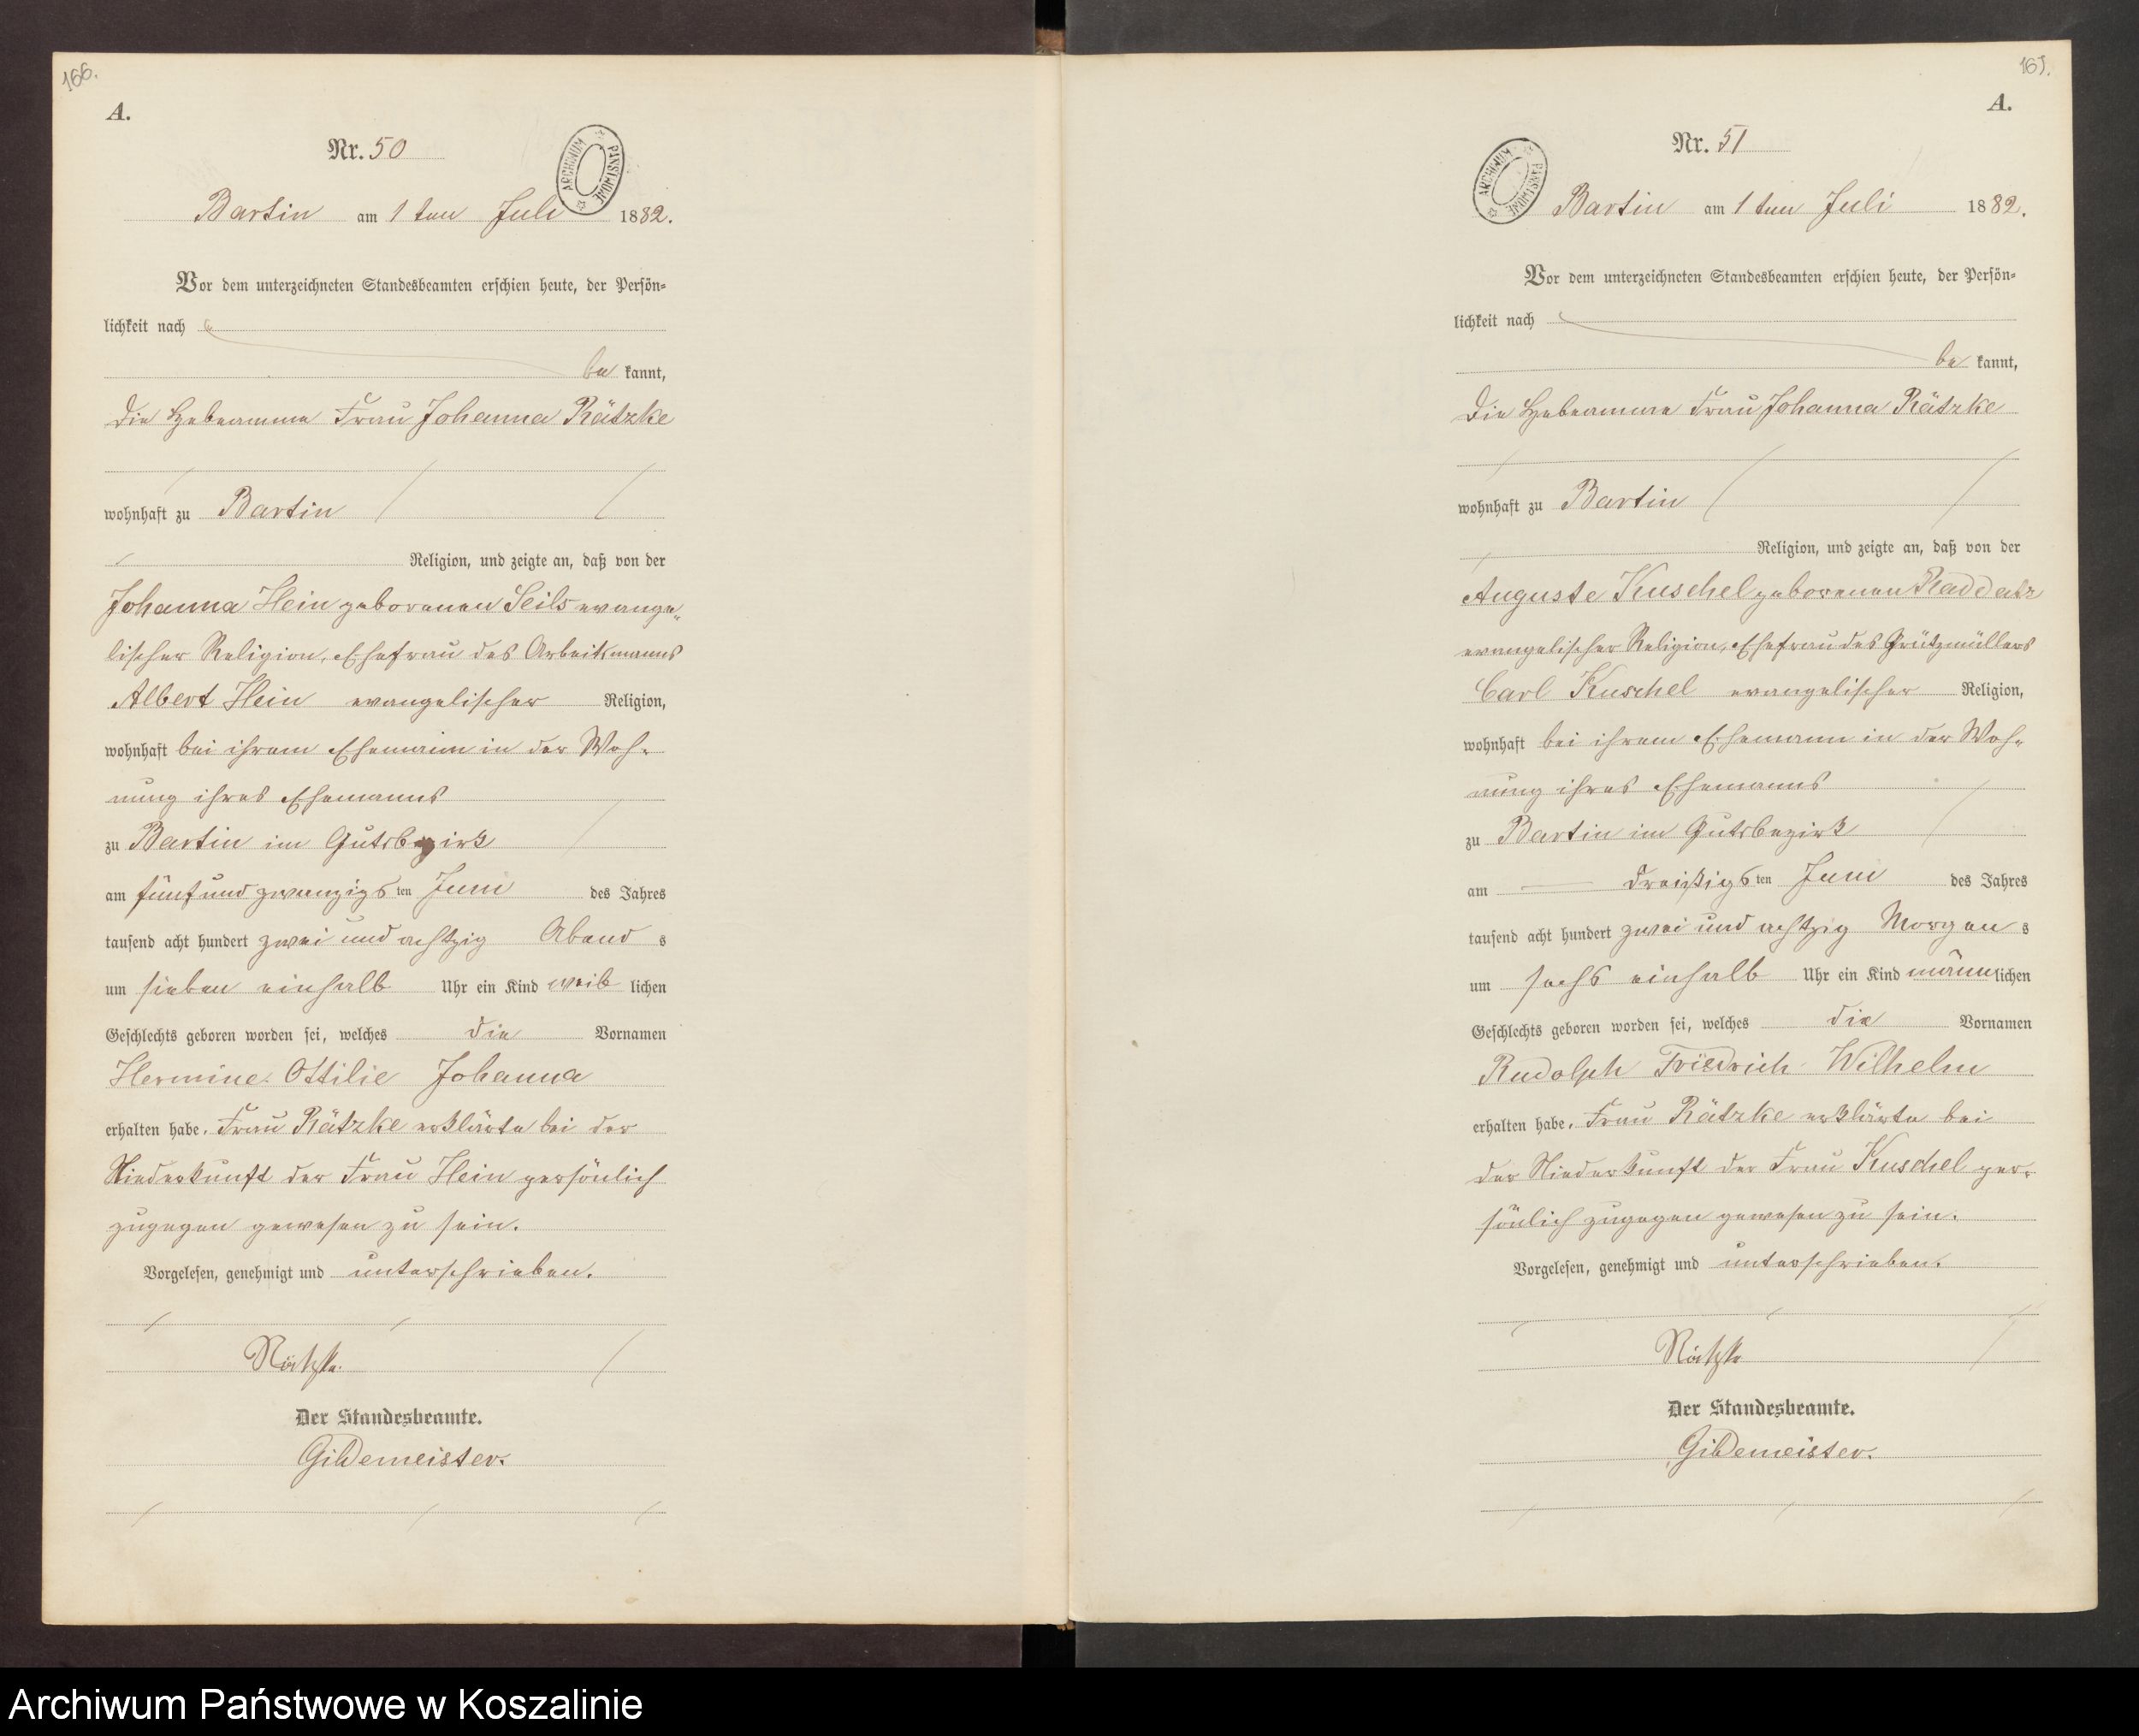 166.
A.
Nr. 50
ARCHIWUM PAŃSTWOWE
Bartin am 1 ten Juli 1882.
Vor dem unterzeichneten Standesbeamten erschien heute, der Persön-
lichkeit nach
be kannt,
die Hebeamme Frau Johanna Rätzke
wohnhaft zu Bartin
Religion, und zeigte an, daß von der
Johanna Hein geborenen Seils evange„
lischer Religion, Ehefrau des Arbeitsmanns
Albert Hein evangelischer Religion,
wohnhaft bei ihrem Ehemann in der Woh„
nung ihres Ehemanns
zu Bartin im Gutsbezirk
am fünf und zwanzigs ten Juni des Jahres
tausend acht hundert zwei und achtzig Abend s
um sieben einhalb Uhr ein Kind weib lichen
Geschlechts geboren worden sei, welches die Vornamen
Hermine Ottilie Johanna
erhalten habe. Frau Rätzke erklärte bei der
Niederkunft der Frau Hein persönlich
zugegen gewesen zu sein.
Vorgelesen, genehmigt und unterschrieben.
Rätzke.
Der Standesbeamte.
Gildemeister.
A.
Nr. 51
ARCHIWUM PAŃSTWOWE
Bartin am 1 ten Juli 1882.
Vor dem unterzeichneten Standesbeamten erschien heute, der Persön-
lichkeit nach
be kannt,
die Hebeamme Frau Johanna Rätzke
wohnhaft zu Bartin
Religion, und zeigte an, daß von der
Auguste Kuschel geborenen Raddatz
evangelischer Religion, Ehefrau des Grützmüllers
Carl Kuschel evangelischer Religion,
wohnhaft bei ihrem Ehemann in der Woh„
nung ihres Ehemanns
zu Bartin im Gutsbezirk
am dreißigs ten Juni des Jahres
tausend acht hundert zwei und achtzig Morgen s
um sechs einhalb Uhr ein Kind männ lichen
Geschlechts geboren worden sei, welches die Vornamen
Rudolph Friedrich Wilhelm
erhalten habe. Frau Rätzke erklärte bei
der Niederkunft der Frau Kuschel per„
sönlich zugegen gewesen zu sein.
Vorgelesen, genehmigt und unterschrieben.
Rätzke
Der Standesbeamte.
Gildemeister.
Archiwum Państwowe w Koszalinie